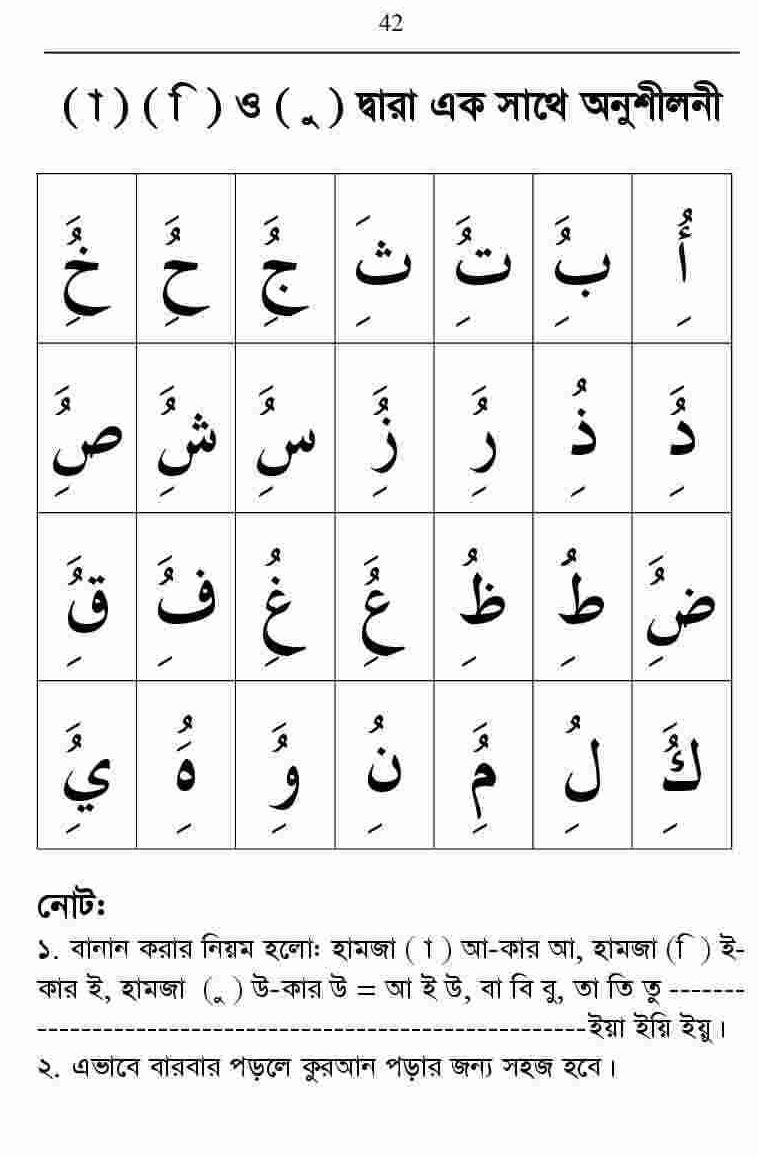 42
( া ) ( ি ) ও ( ু ) দ্বারা এক সাথে অনুশীলনী
أَُِ بَُِ تَُِ ثَِ جَُِ حَُِ خَُِ
دَُِ ذُِ رَُِ زَُِ سَُِ شَُِ صَُِ
ضَُِ طُِ ظُِ عَُِ غُِ فَُِ قَُِ
كَُِ لُِ مَُِ نُِ وَُِ هَُِ يَُِ
নোট:
১. বানান করার নিয়ম হলো: হামজা ( া ) আ-কার আ, হামজা ( ি ) ই-
কার ই, হামজা ( ু ) উ-কার উ = আ ই উ, বা বি বু, তা তি তু -------
---------------------------------------------------ইয়া ইয়ি ইয়ু।
২. এভাবে বারবার পড়লে কুরআন পড়ার জন্য সহজ হবে।